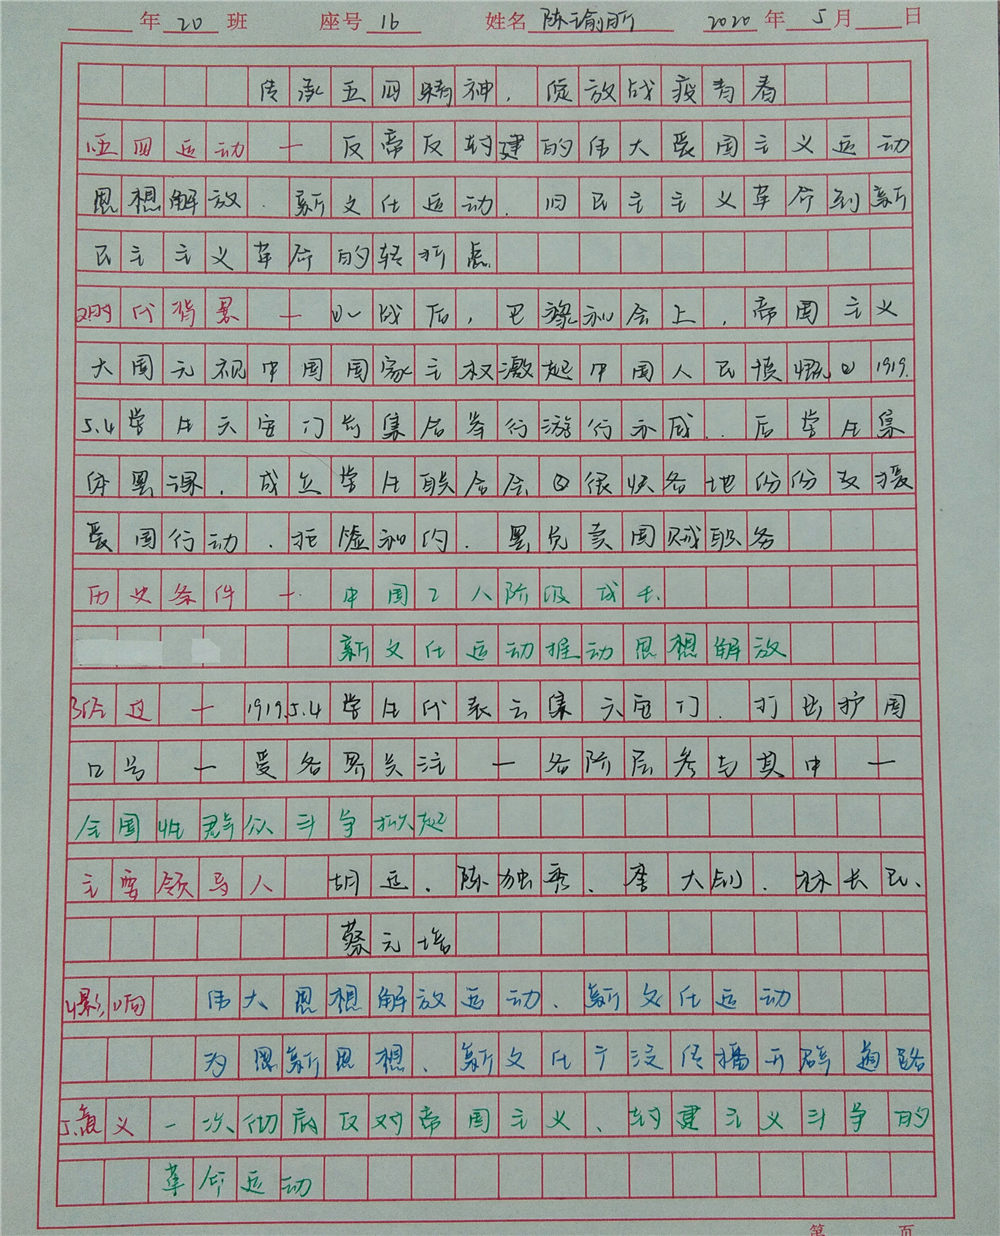 年 20 班 座号 16 姓名 陈瑜昕 2020 年 5 月 日
传承五四精神，绽放战疫青春
1.五四运动 — 反帝反封建的伟大爱国主义运动
思想解放、新文化运动、旧民主主义革命到新
民主主义革命的转折点
2.时代背景 — ①一战后，巴黎和会上，帝国主义
大国无视中国国家主权激起中国人民愤慨②1919.
5.4学生天安门前集合举行游行示威、后学生集
体罢课，成立学生联合会③很快各地份份支援
爱国行动、拒签和约、罢免卖国贼职务
历史条件 — 中国工人阶级成长
新文化运动推动思想解放
3.经过 — 1919.5.4学生代表云集天安门、打出护国
口号 — 受各界关注 — 各阶层参与其中 —
全国性群众斗争掀起
主要领导人 胡适、陈独秀、李大钊、林长民、
蔡元培
4.影响 伟大思想解放运动、新文化运动
为思新思想、新文化广泛传播开辟道路
5.意义 一次彻底反对帝国主义、封建主义斗争的
革命运动
第 页